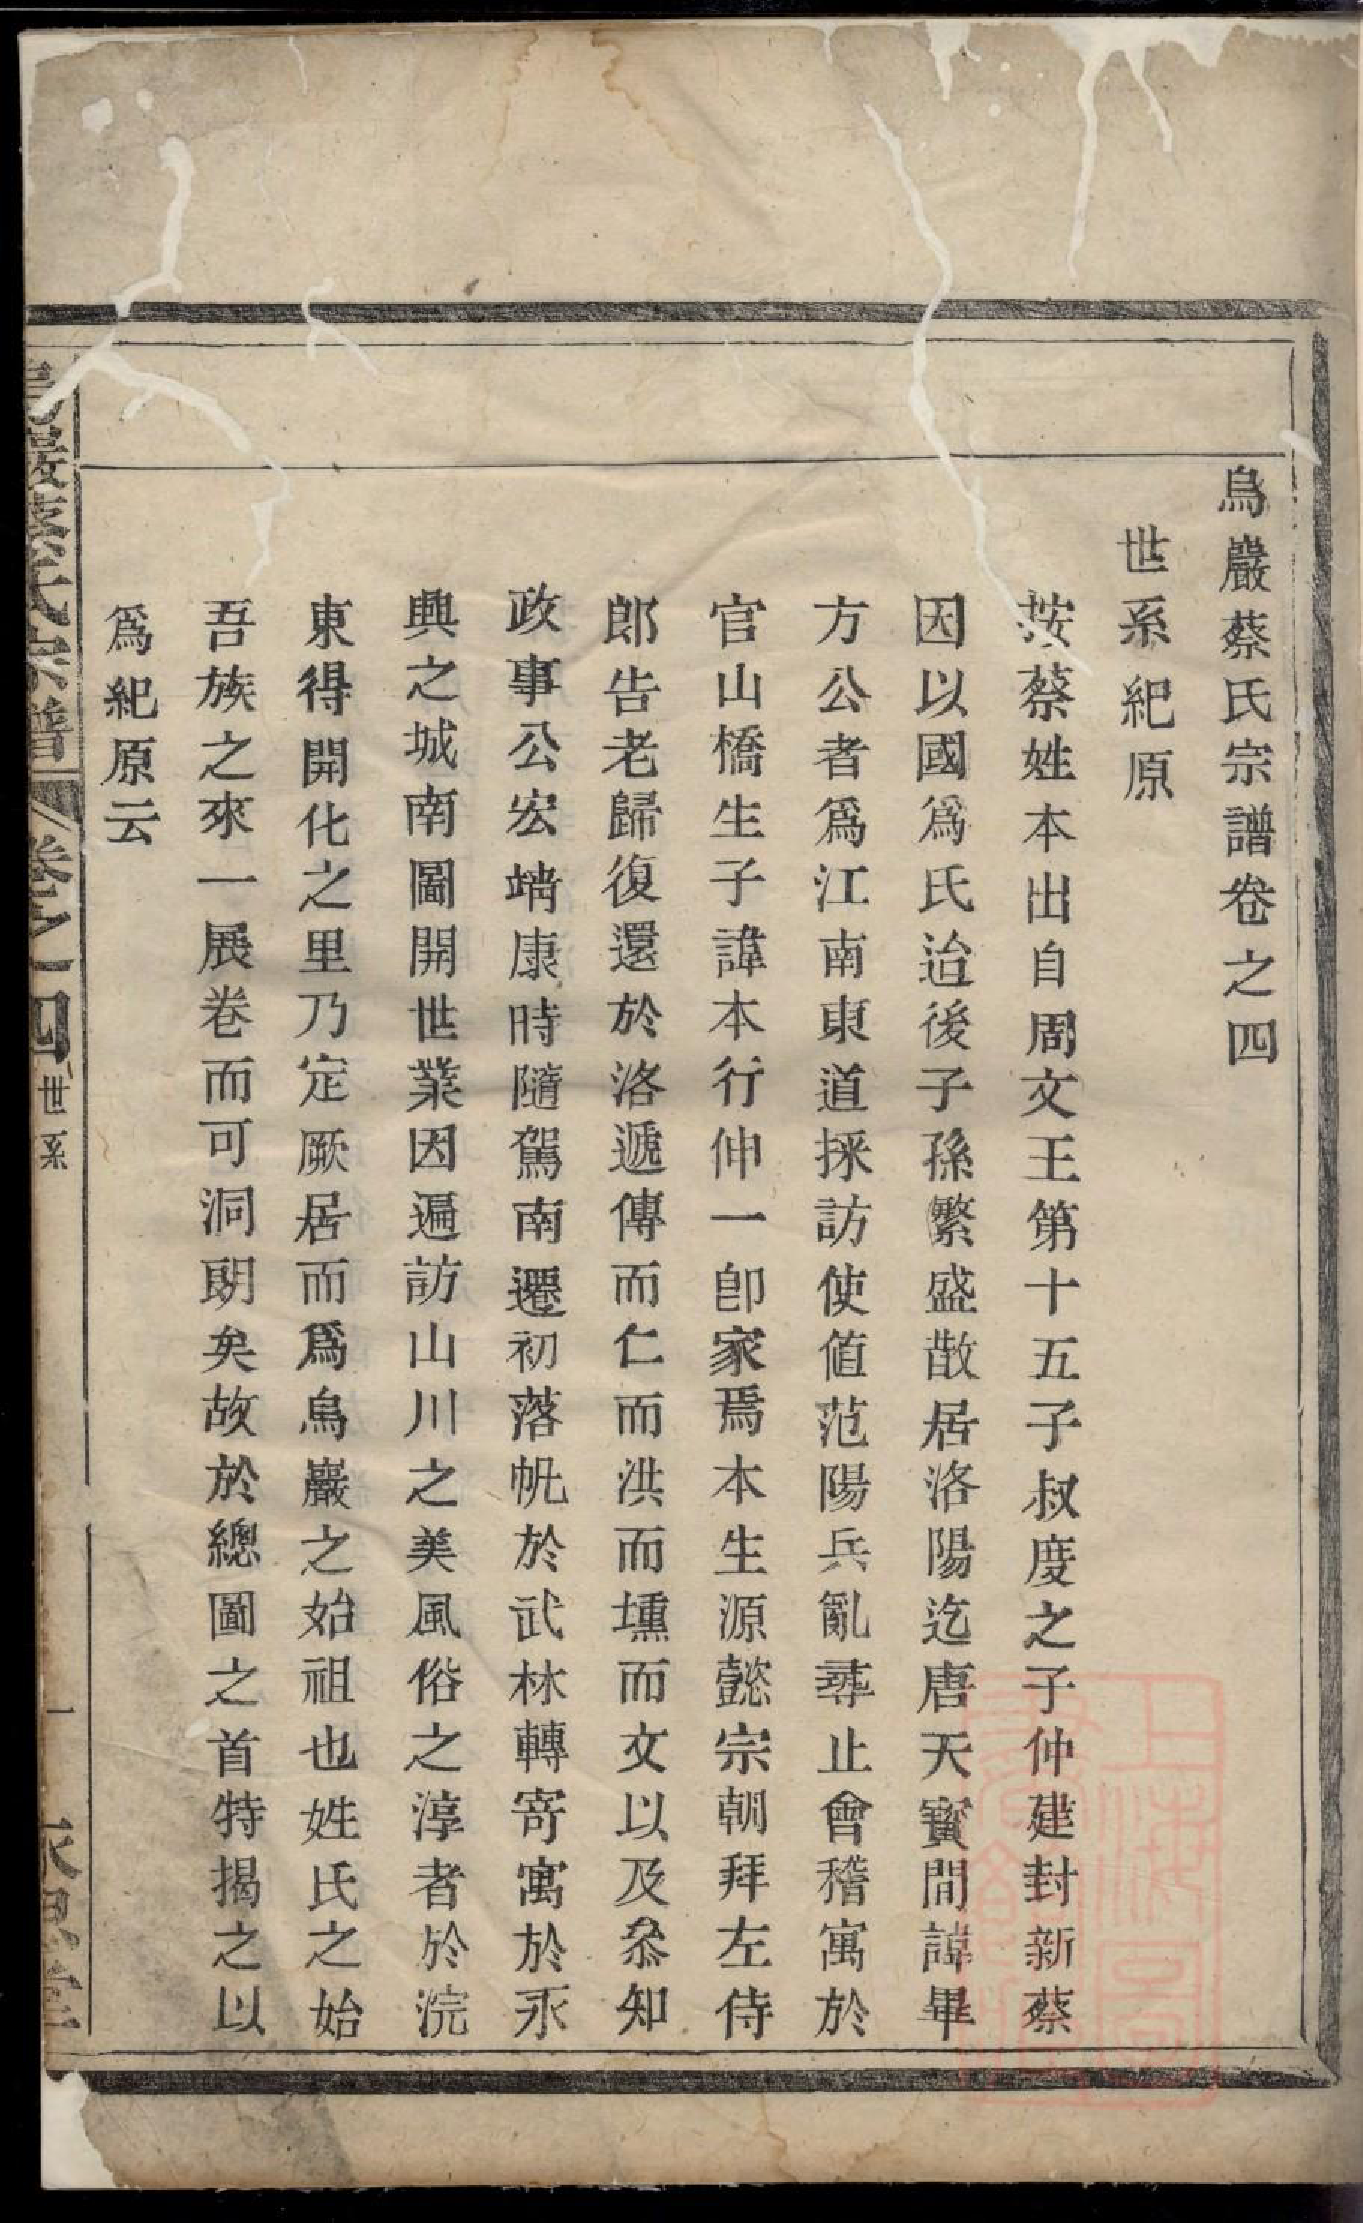 烏巖蔡氏宗譜卷之四
世系紀原
按蔡姓本出自周文王第十五子叔度之子仲建封新蔡
因以國爲氏迨後子孫繁盛散居洛陽迄唐天寶間諱畢
方公者爲江南東道採訪使值范陽兵亂尋止會稽寓於
官山橋生子諱本行仲一卽家焉本生源懿宗朝拜左侍
郎告老歸復還於洛遞傳而仁而洪而壎而文以及叅知
政事公宏端康時隨駕南遷初落帆於武林轉寄寓於永
興之城南圖開世業因遍訪山川之美風俗之淳者於浣
東得開化之里乃定厥居而爲烏巖之始祖也姓氏之始
吾族之來一展卷而可洞朗矣故於總圖之首特揭之以
爲紀原云
烏巖蔡氏宗譜 卷之四 世系 一
上海圖書館藏